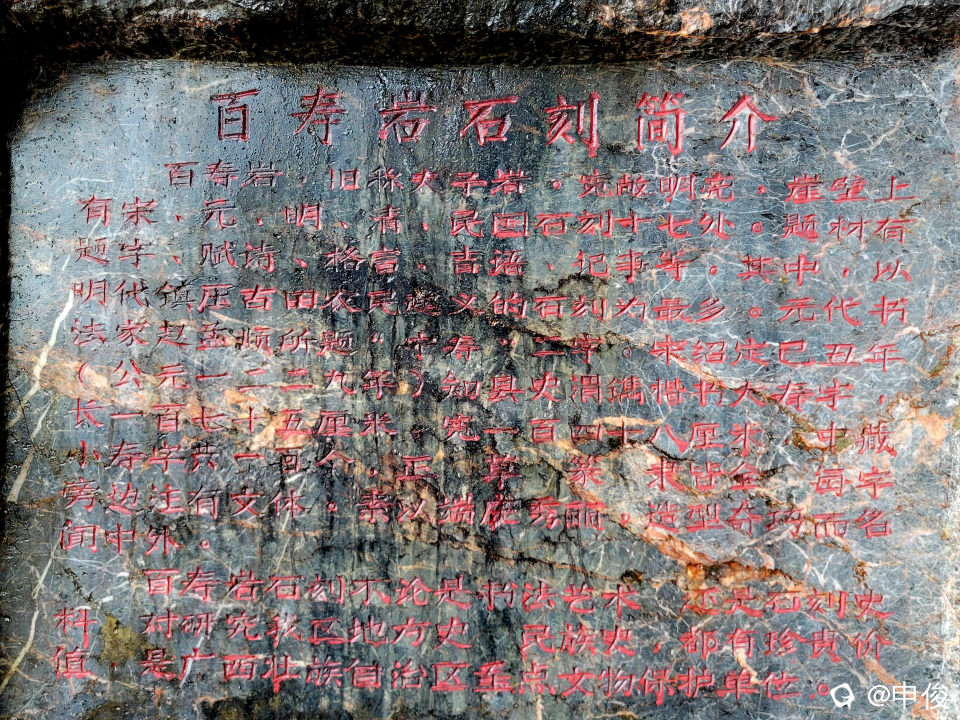 百寿岩石刻简介
百寿岩，旧称夫子岩。宽敞明亮，崖壁上
有宋、元、明、清、民国石刻十七处。题材有
题字、赋诗、格言、吉语、纪事等，其中，以
明代镇压古田农民起义的石刻为最多。元代书
法家赵孟頫所题"千寿"二字。宋绍定己丑年
（公元一二二九年）知县史渭镌楷书大寿字，
长一百七十五厘米，宽一百四十八厘米，中藏
小寿字共一百个，正 篆 隶皆全，每字
旁边注有文体。素以端庄秀丽，造型奇巧而名
闻中外。
百寿岩石刻不论是书法艺术 还是石刻史
料 对研究我区地方史 民族史，都有珍贵价
值，是广西壮族自治区重点文物保护单位。
@申俊